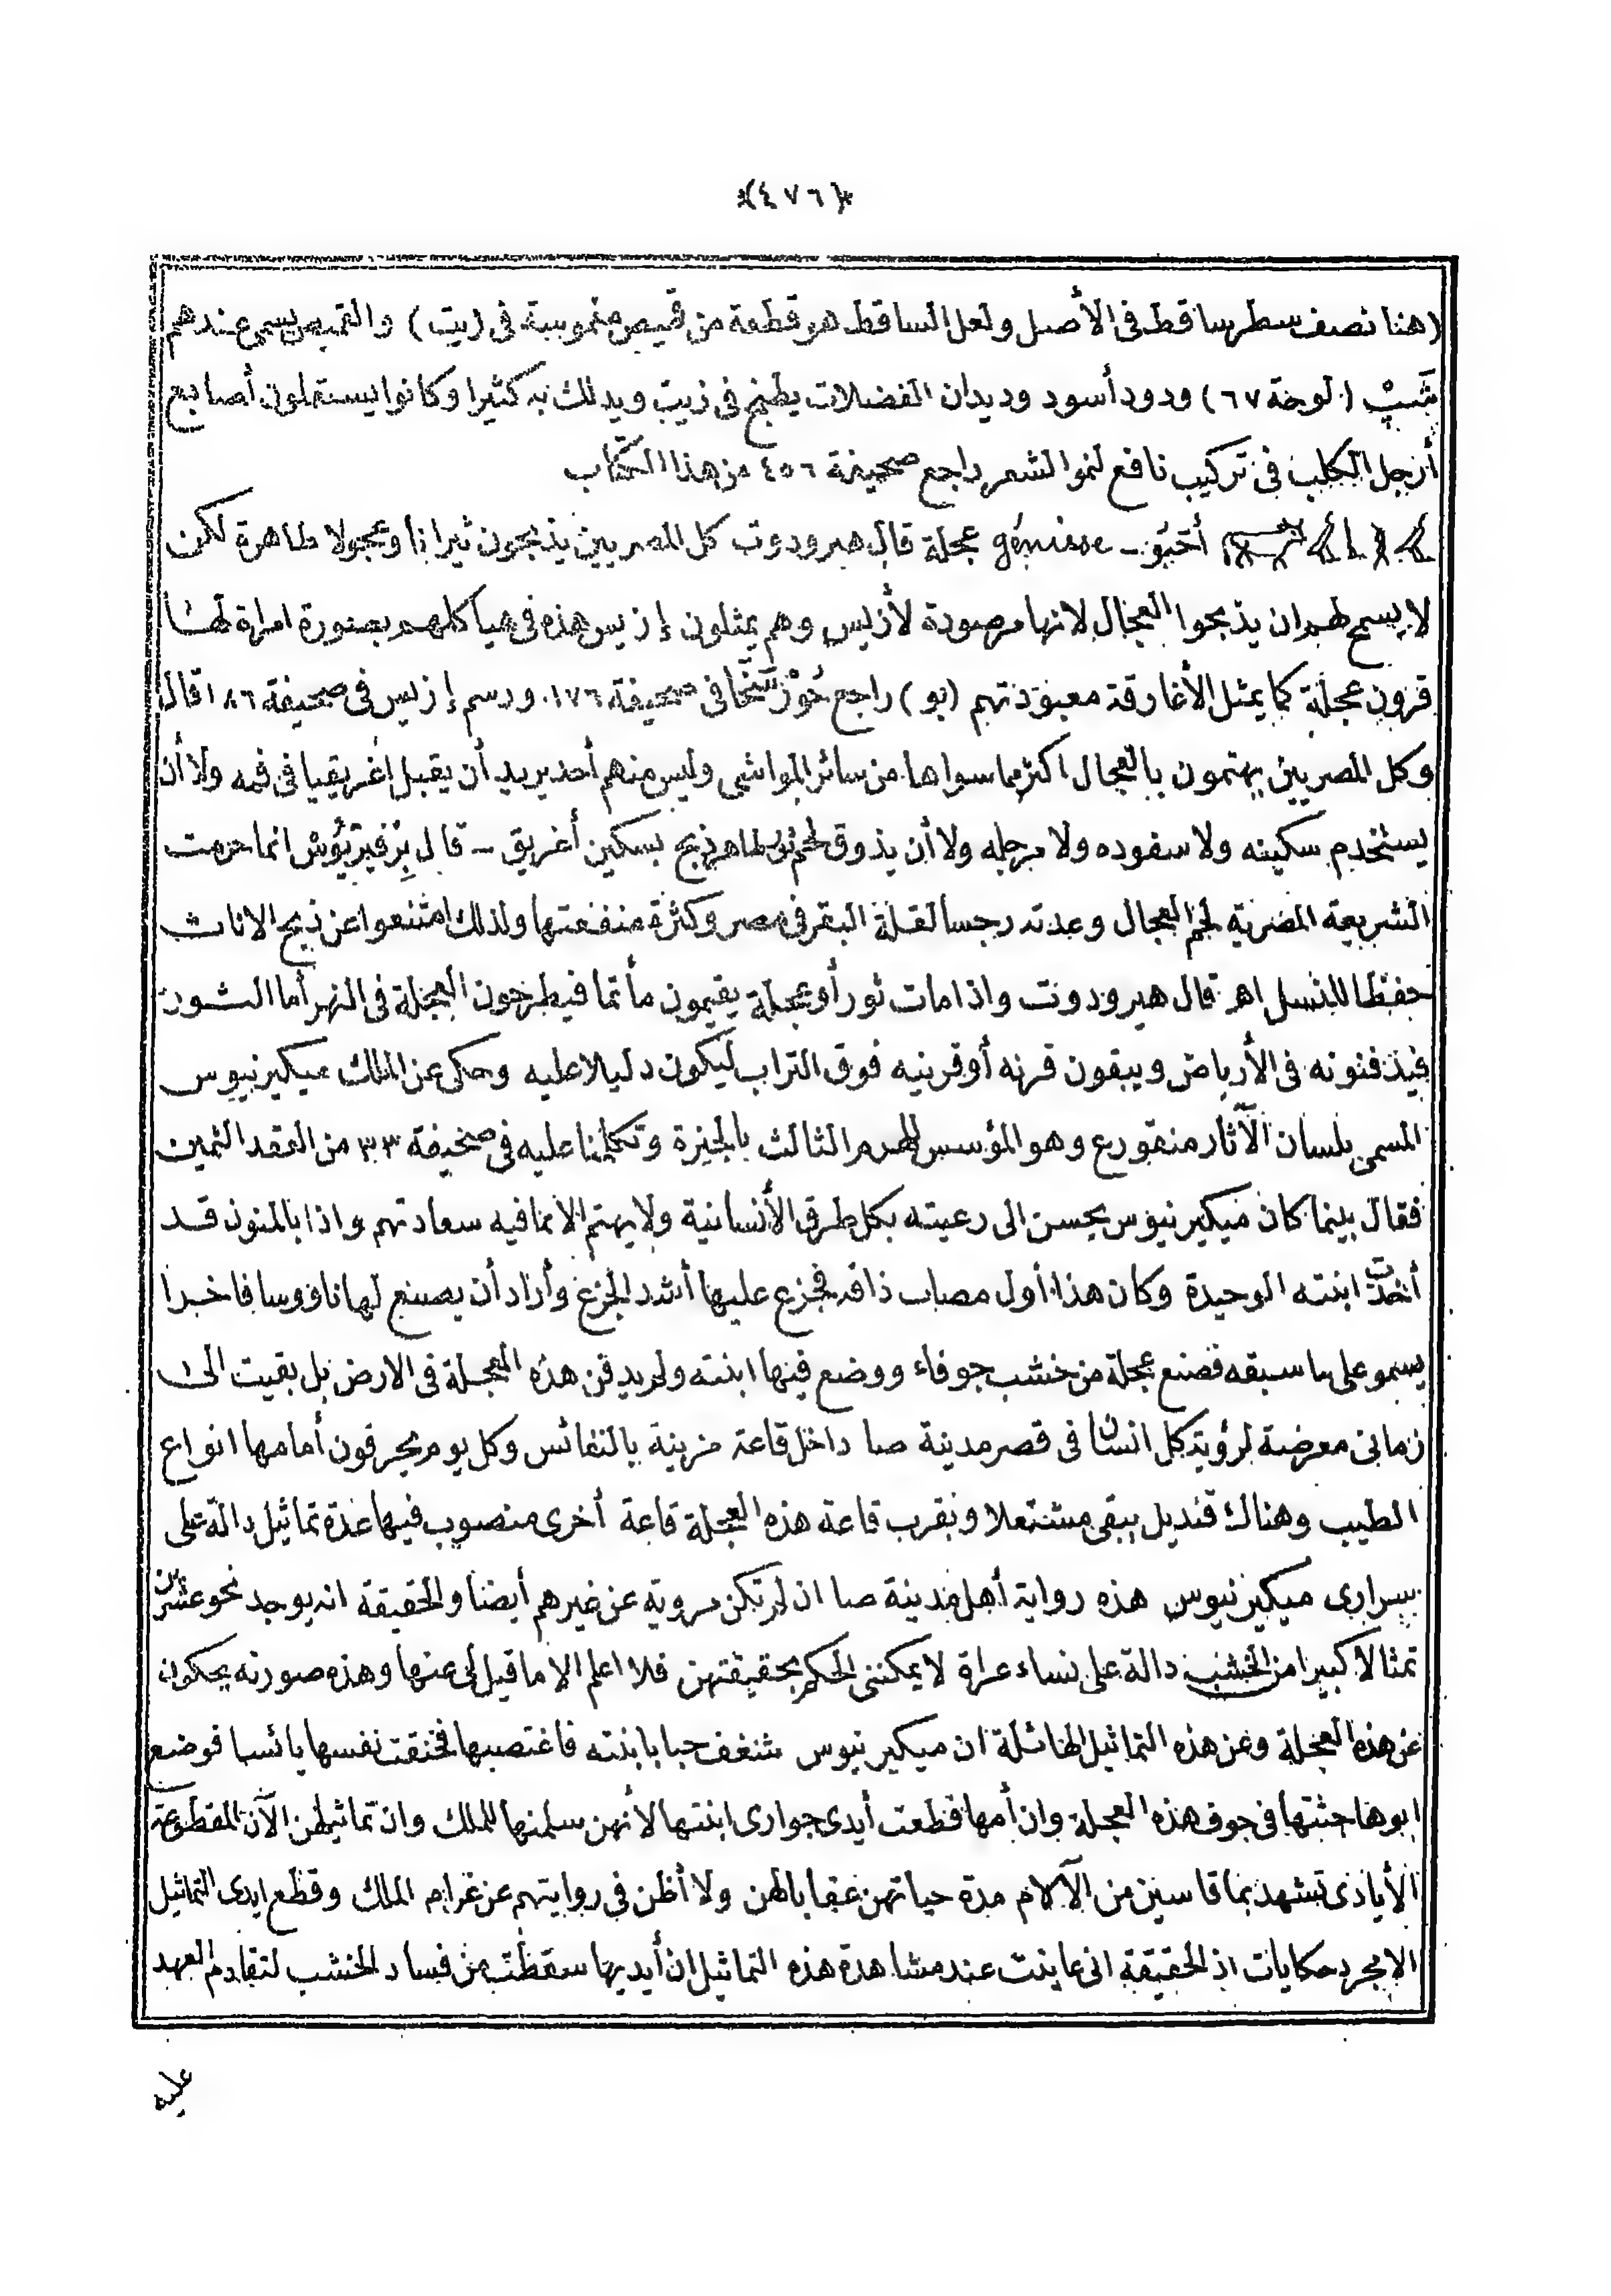 ﴿٤٧٦﴾
(هنا نصف سطر ساقط فى الأصل ولعل الساقط هو قطعة من قميص مغموسة فى زيت) والقميص يسمى عندهم
(لوحة ٦٧) ودود أسود وديدان الفضلات يطبخ فى زيت ويدلك به كثيرا وكانوا يستعملون أصابع
أرجل الكلب فى تركيب نافع لنمو الشعر راجع صحيفة ٤٥٦ من هذا الكتاب
génisse ـ عجلة قال هيرودوت كل المصريين يذبحون ثيرانا وعجولا طاهرة لكن
لا يسمح لهم ان يذبحوا العجال لانها مرصودة لأزيس وهم يمثلون إزيس هذه فى هياكلهم بصورة امراة لها
قرون عجلة كما يمثل الأغارقة معبودتهم (يو) راجع فى صحيفة ١٧٦ ورسم إزيس فى صحيفة ١٨٦ قال
وكل المصريين يهتمون بالعجال اكثر مما سواها من سائر المواشى وليس منهم أحد يريد أن يقبل إغريقيا فى فمه ولا أن
يستخدم سكينه ولا سفوده ولا مرجله ولا أن يذوق لحم ثور طاهر ذبح بسكين أغريق ـ قال بِرْفِيرْيُوش انما حرمت
الشريعة المصرية لحم العجال وعدته رجسا لقلة البقر فى مصر وكثرة منفعتها ولذلك امتنعوا عن ذبح الاناث
حفظا للنسل اهر قال هيرودوت واذا مات ثور أو عجلة يقيمون مأتما فيطرحون العجلة فى النهر أما الثور
فيدفنونه فى الأرباض ويبقون قرنه أو قرنيه فوق التراب ليكون دليلا عليه وحكى عن الملك ميكيرنيوس
المسمى بلسان الآثار منقورع وهو المؤسس للهرم الثالث بالجيزة وتكلمنا عليه فى صحيفة ٣٣ من العقد الثمين
فقال بينما كان ميكيرنيوس يحسن الى رعيته بكل طرق الأنسانية ولا يهتم الا بما فيه سعادتهم واذا بالمنون قد
أخذت ابنته الوحيدة وكان هذا أول مصاب ذاقه فجزع عليها أشد الجزع وأراد أن يصنع لها ناووسا فاخرا
يسمو على ما سبقه فصنع عجلة من خشب جوفاء ووضع فيها ابنته ولم يدفن هذه العجلة فى الارض بل بقيت الى
زمانى معرضة لرؤية كل انسان فى قصر مدينة صا داخل قاعة مزينة بالنفائس وكل يوم يحرقون أمامها انواع
الطيب وهناك قنديل يبقى مشتعلا وبقرب قاعة هذه العجلة قاعة أخرى منصوب فيها عدة تماثيل دالة على
سرارى ميكيرنيوس هذه رواية أهل مدينة صا ان لم تكن مروية عن غيرهم أيضا والحقيقة انه يوجد نحو عشرين
تمثالا كبيرا من الخشب دالة على نساء عراة لا يمكننى الحكم بحقيقتهن فلا اعلم الا ما قيل لى عنها وهذه صورته يحكون
عن هذه العجلة وعن هذه التماثيل الهائلة ان ميكيرنيوس شغف حبا بابنته فاغتصبها فخنقت نفسها يائسا فوضع
ابوها جثتها فى جوف هذه العجلة وان أمها قطعت أيدى جوارى ابنتها لأنهن سلمنها للملك وان تماثيلهن الآن المقطوعة
الأيادى تشهد بما قاسين من الآلام مدة حياتهن عقابا لهن ولا أظن فى روايتهم عن غرام الملك وقطع ايدى التماثيل
الا مجرد حكايات اذ الحقيقة انى عاينت عند مشاهدة هذه التماثيل ان أيديها سقطت من فساد الخشب لتقادم العهد
عليه